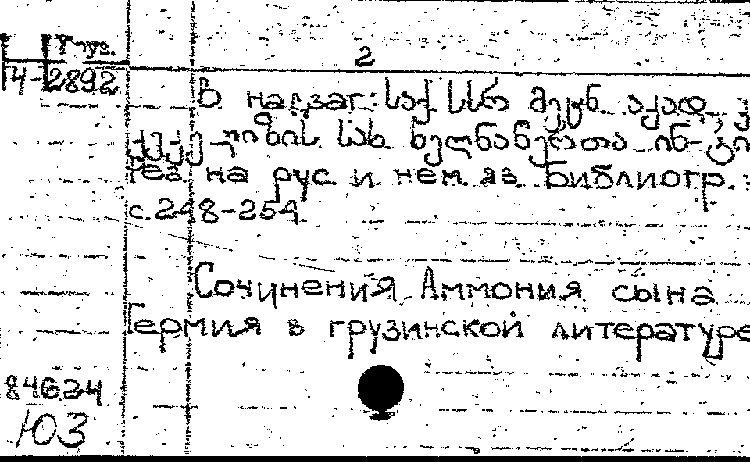 Груз.
2
14-2892
В надзаг.: საქ სსრ მეცნ. აკად.,
კ. კეკელიძის სახ. ხელნაწერთა ინ-ტი
Рез. на рус. и нем. яз. Библиогр.:
с. 248-254.
Сочинения Аммония сына
Гермия в грузинской литературе
84634
ЮЗ